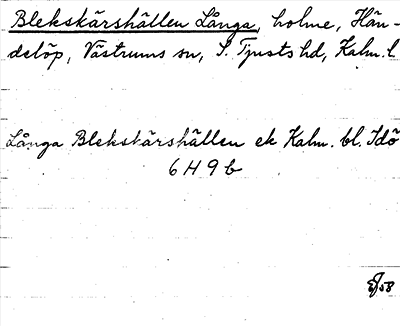 Blekskärshällen Långa, holme, Hän-
delöp, Västrums sn, S. Tjusts hd, Kalm. l
Långa Blekskärshällen ek Kalm. bl. Idö
6 H 9 b
58